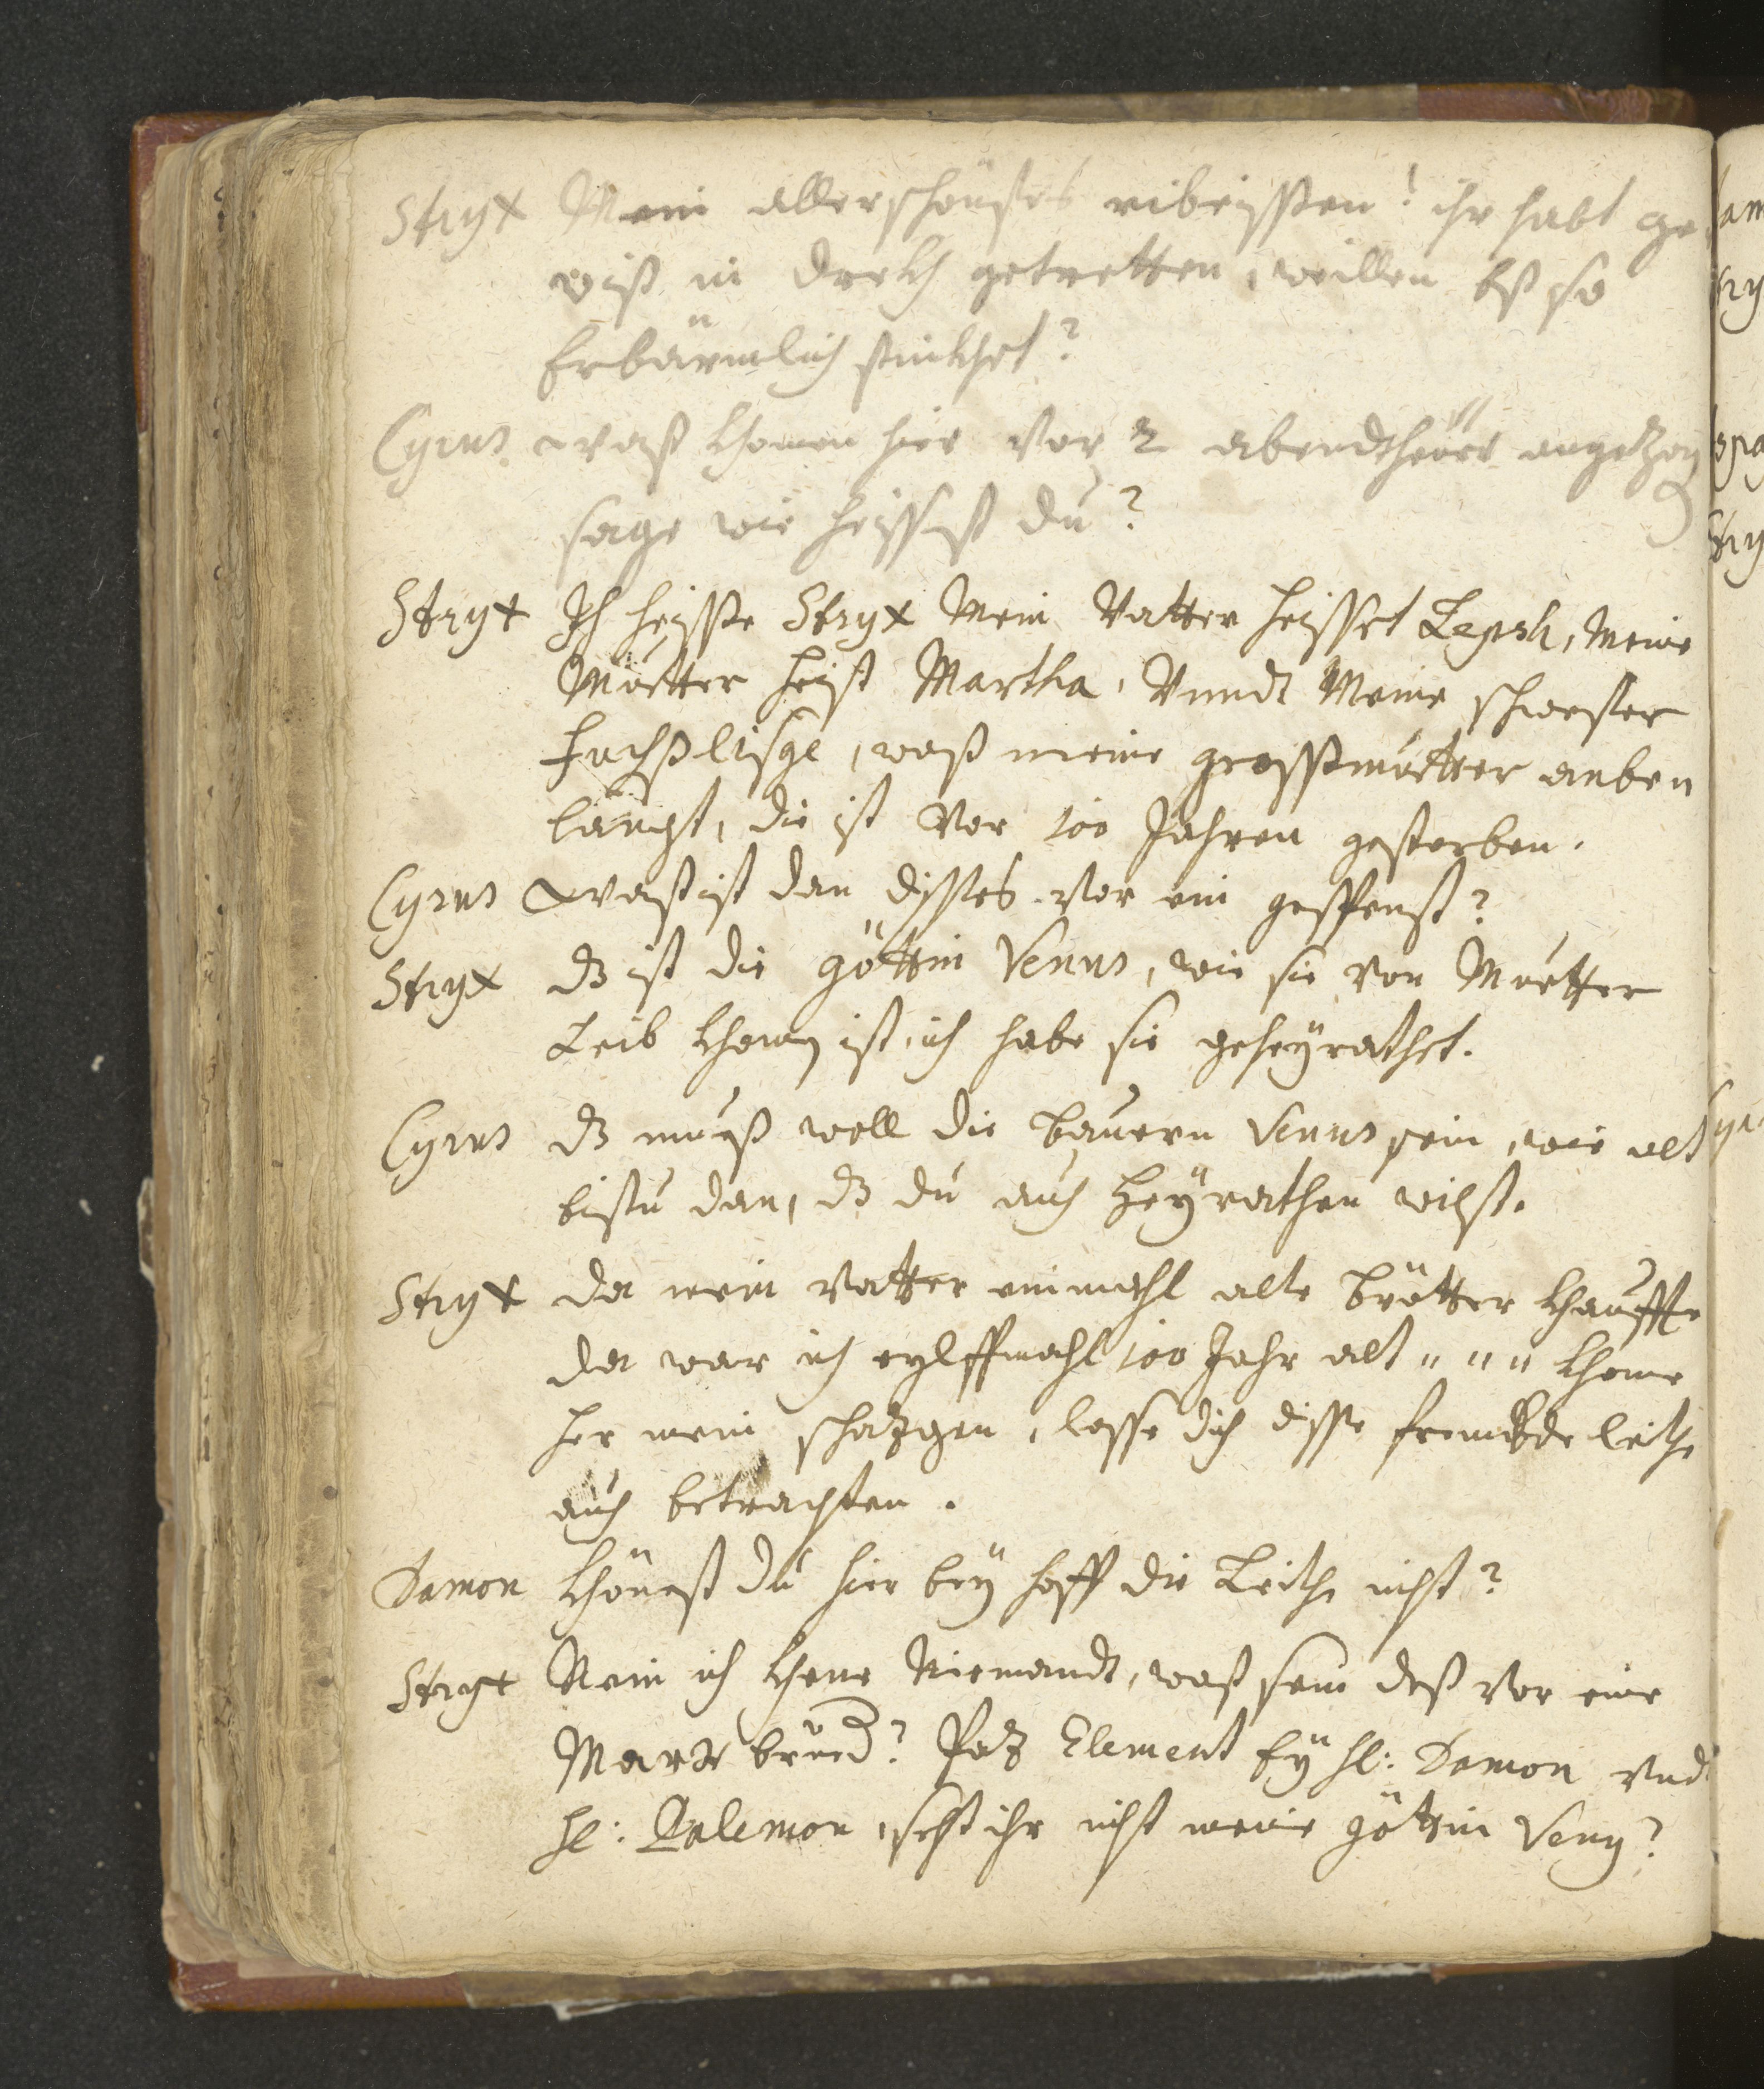 Stryx Mein allerschönstes ribeissen! ihr habt ge
wiß in drekh getretten, weillen eß so
Erbärmlich stinkhet?
Cyrus. Waß khomen hier vor 2 abendtheür angetzog
sage wie heissest du?
Stryx Ich heisse Stryx Mein Vatter heisset Lepsh, Meine
Muetter heist Martha, Vnndt Meine schwester
fuchßlisge, waß meine grossmuetter anben
langt, die ist vor 100 Jahren gestorben.
Cyrus Waß ist dan disses vor ein gespenst?
Stryx dz ist die göttin Venus, wie sie von Muetter
Leib khomen ist, ich habe sie geheyrathet.
Cyrus dz mueß woll die bauern Venus sein, wie alt
bistu dan, dz du auch heyrathen wilst.
Stryx da mein vatter einmahl alte brötter khauffte
da war ich eylffmahl 100 Jahr alt " " " khome
her mein schatzgen, lasse dich disse frembde leithe
auch betrachten.
Damon khönest du hier bey hoff die Leithe nicht?
Stryx Nein ich khene Niemandt, waß sein deß vor eine
Marx brüed? Potz Element ey hl: Damon vnd
hl: Palemon, seht ihr nicht meine göttin Venus?